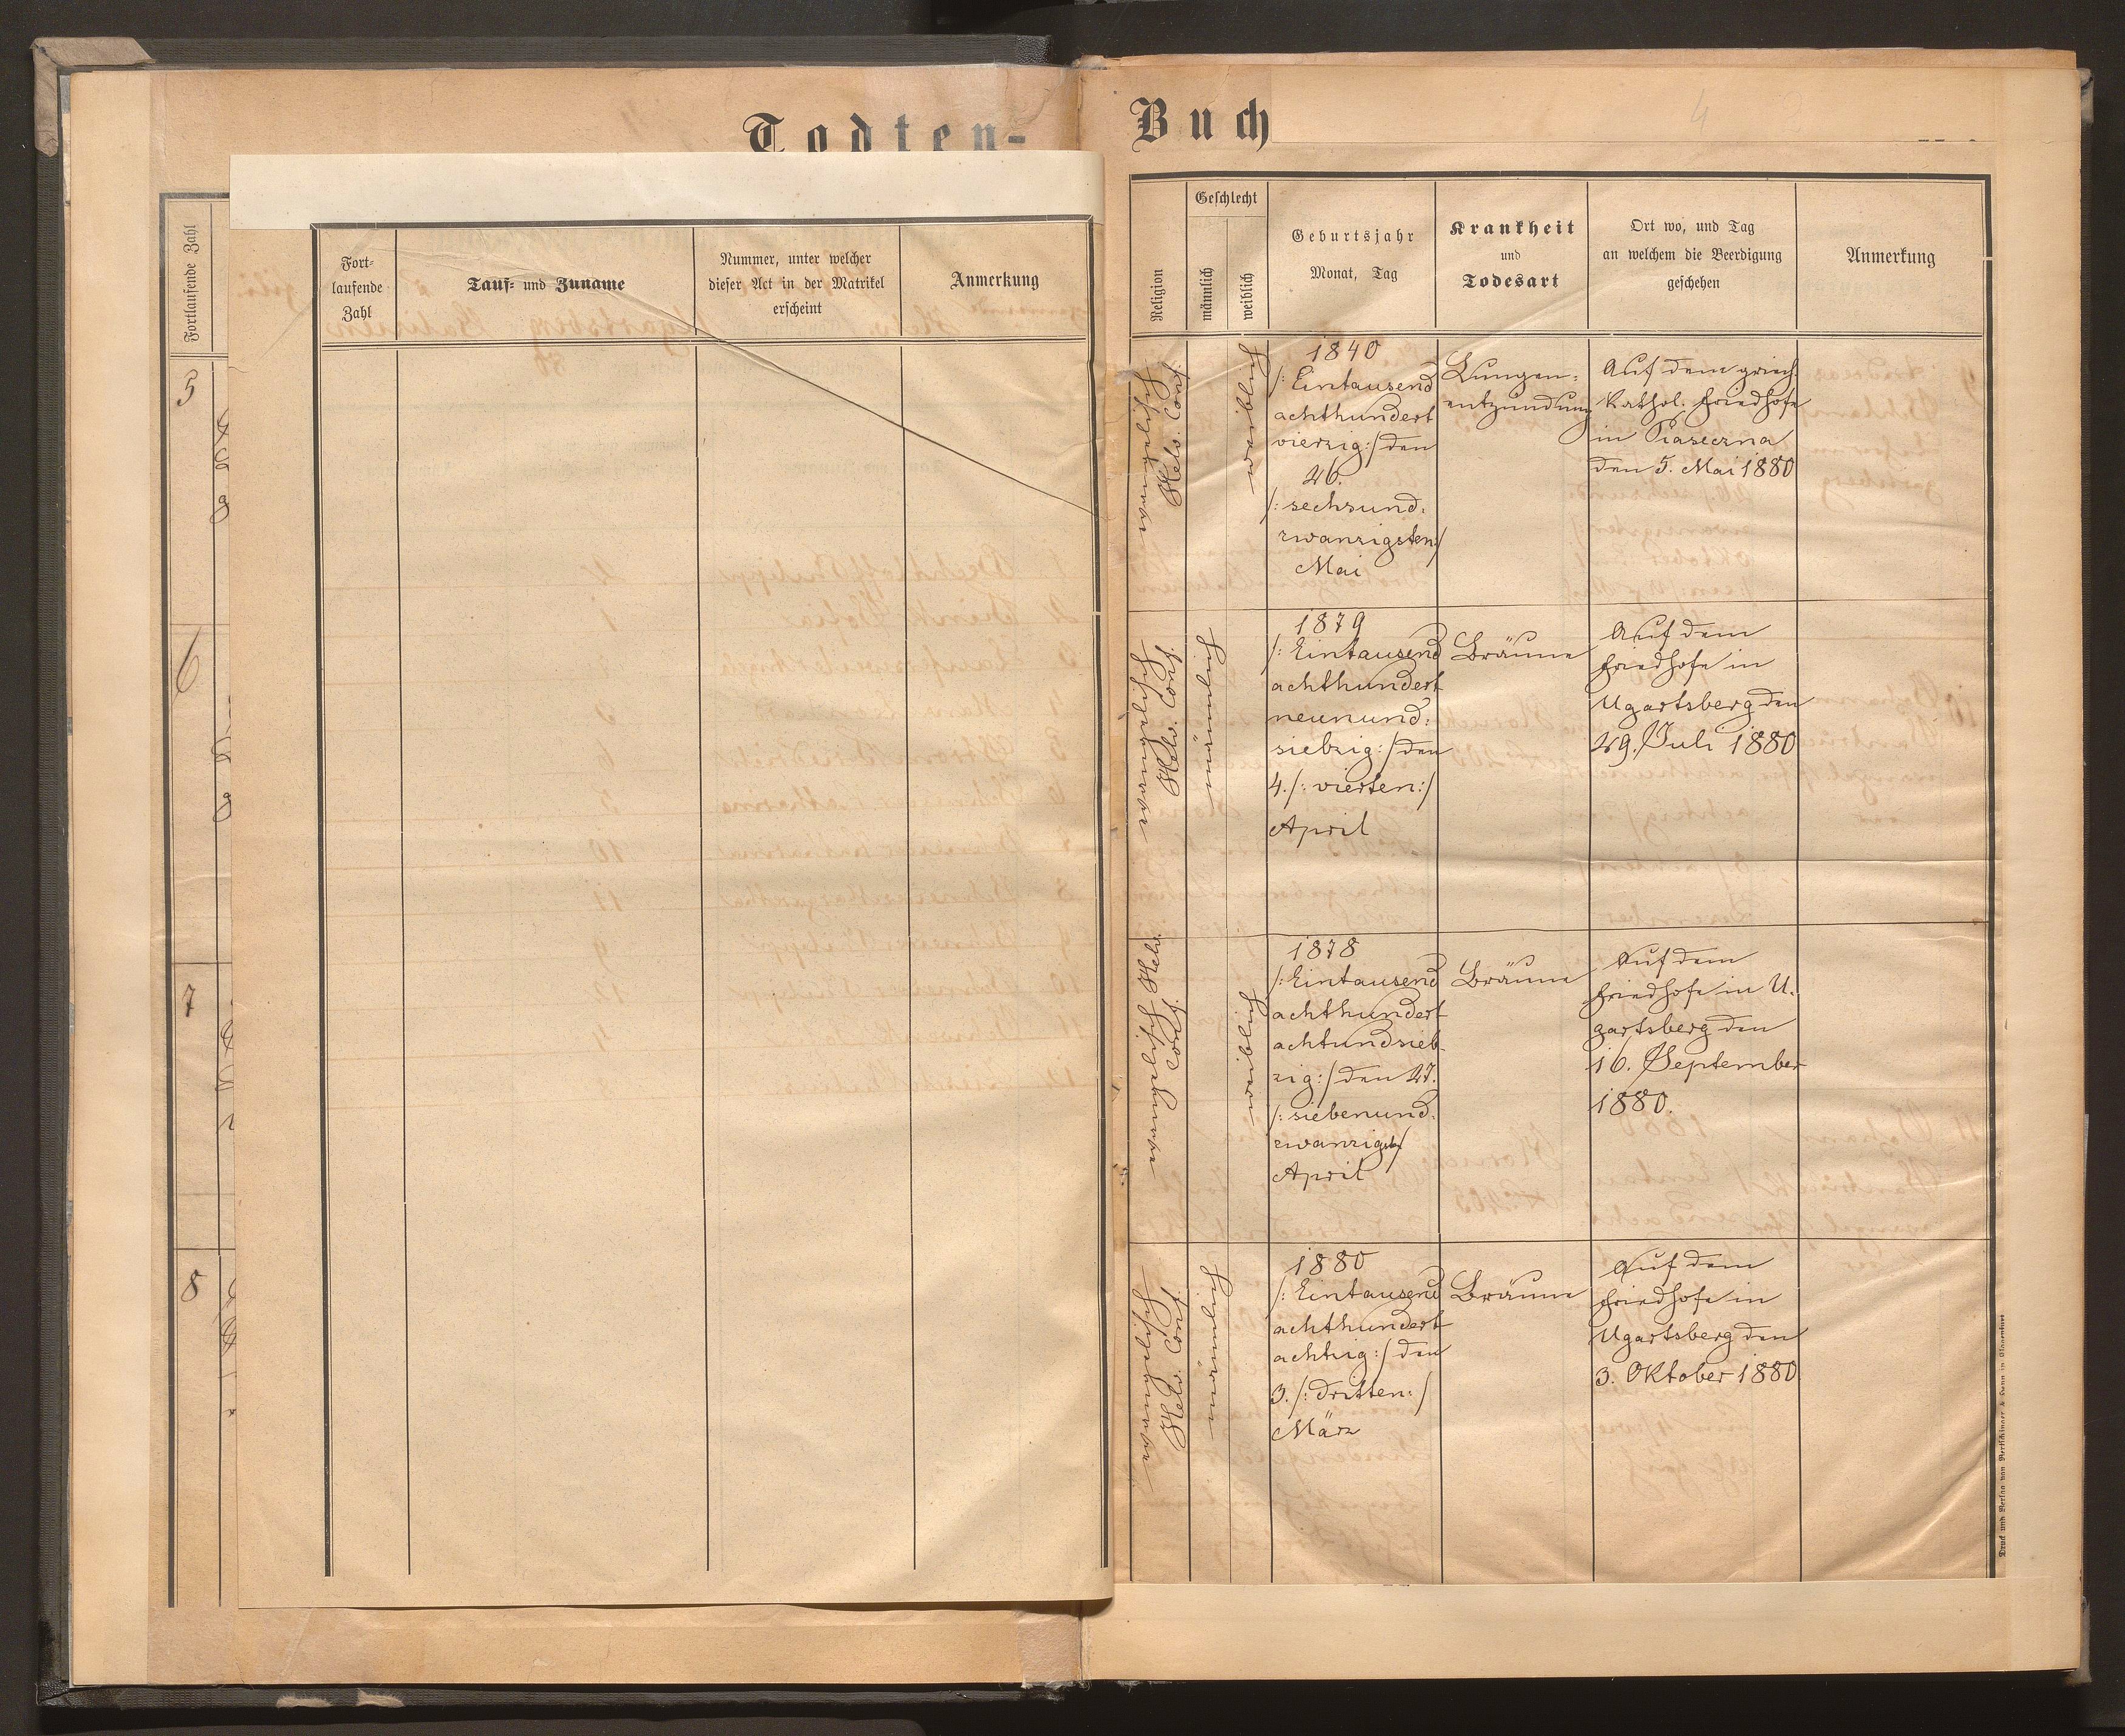 Todten-
Buch
4 2
Fortlaufende Zahl
5
6
7
8
Fort-
laufende
Zahl
Tauf- und Zuname
Nummer, unter welcher
dieser Act in der Matrikel
erscheint
Anmerkung
Religion
Geschlecht
männlich
weiblich
Geburtsjahr
Monat, Tag
Krankheit
und
Todesart
Ort wo, und Tag
an welchem die Beerdigung
geschehen
Anmerkung
evangelisch
Helv. Conf.
weiblich
1840
/: Eintausend
achthundert
vierzig :/ den
26.
/: sechsund-
zwanzigsten :/
Mai
Lungen-
entzündung
Auf dem griech.
kathol. Friedhofe
in Piaseczna
den 5. Mai 1880
evangelisch
Helv. Conf.
männlich
1879
/: Eintausend
achthundert
neunund-
siebzig :/ den
4. /: vierten :/
April
Bräune
Auf dem
Friedhofe in
Ugartsberg den
29. Juli 1880
evangelisch Helv.
Conf.
weiblich
1878
/: Eintausend
achthundert
achtundsieb-
zig :/ den 27.
/: siebenund-
zwanzigst :/
April
Bräune
Auf dem
Friedhofe in U-
gartsberg den
16. September
1880.
evangelisch
Helv. Conf.
männlich
1880
/: Eintausend
achthundert
achtzig :/ den
3. /: dritten :/
März
Bräune
Auf dem
Friedhofe in
Ugartsberg den
3. Oktober 1880
Druck und Verlag von